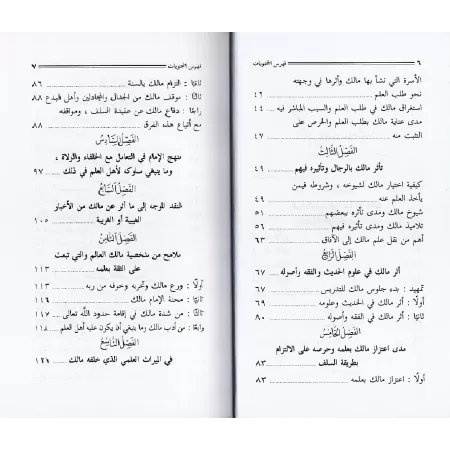 ٦ فهرس المحتويات
الأسرة التي نشأ بها مالك وأثرها في وجهته
نحو طلب العلم ٤٦
استغراق مالك في طلب العلم والسبب المباشر فيه ٤٤
مدى عناية مالك بطلب العلم والحرص على
التثبت منه ٤٧
الفصل الثالث
تأثر مالك بالرجال وتأثيره فيهم ٤٩
كيفية اختيار مالك لشيوخه ، وشروطه فيمن
يأخذ العلم عنه ٤٩
شيوخ مالك ومدى تأثره ببعضهم ٥١
تلاميذ مالك ومدى تأثيره فيهم ٥٦
أهم من نقل علم مالك إلى الآفاق ٦٣
الفصل الرابع
أثر مالك في علوم الحديث والفقه وأصوله ٦٧
تمهيد : بدء جلوس مالك للتدريس ٦٧
أولًا : أثر مالك في الحديث وعلومه
ثانيًا : أثر مالك في الفقه وأصوله ٨٠
الفصل الخامس
مدى اعتزاز مالك بعلمه وحرصه على الالتزام
بطريقة السلف ٨٣
أولًا : اعتزاز مالك بعلمه ٨٣
فهرس المحتويات ٧
ثانيًا : التزام مالك بالسنة ٨٦
ثالثًا : موقف مالك من الجدال والمجادلين وأهل البدع ٨٨
رابعًا : دفاع مالك عن عقيدة السلف ، ومواقفه
مع أتباع هذه الفرق ٨٨
الفصل السادس
منهج الإمام في التعامل مع الخلفاء والولاة ،
وما ينبغي سلوكه لأهل العلم في ذلك ٩٧
الفصل السابع
النقد الموجه إلى ما أثر عن مالك من الأخبار
الغيبية أو الغريبة ١٠٥
الفصل الثامن
ملامح من شخصية مالك العالم والتي تبعث
على الثقة بعلمه ١١٣
أولًا : ورع مالك وتحريه وخوفه من ربه ١١٣
ثانيًا : محنة الإمام مالك ١١٦
ثالثًا : من شدة مالك في إقامة حدود الله تعالى ١١٧
رابعًا : من أدب مالك وما ينبغي أن يكون عليه أهل العلم ١١٨
الفصل التاسع
في الميراث العلمي الذي خلفه مالك